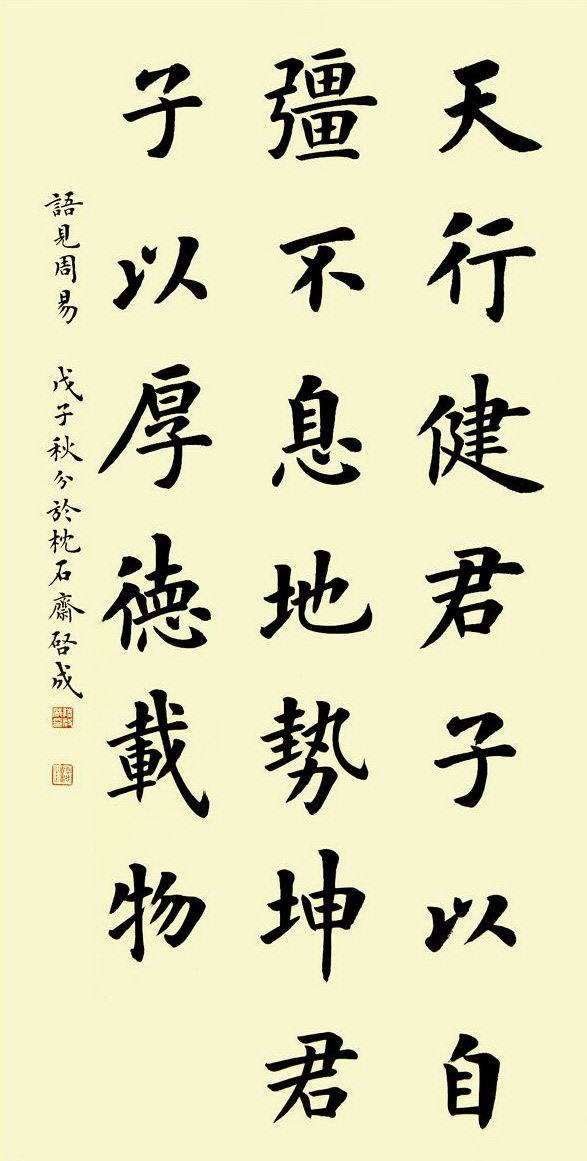 天行健君子以自
彊不息地勢坤君
子以厚德載物
語見周易 戊子秋分於枕石齋啓成